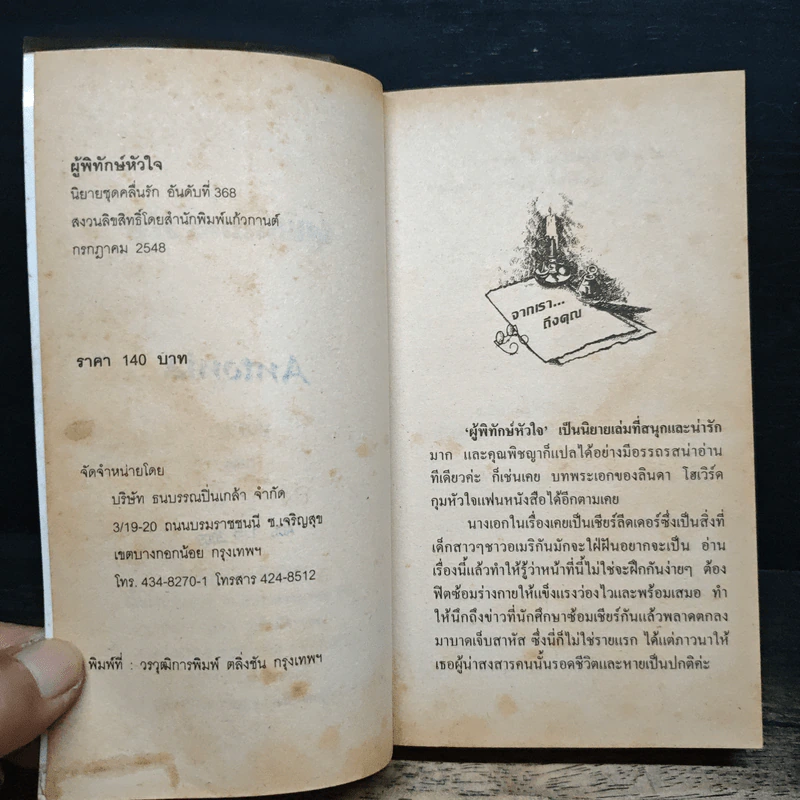 ผู้พิทักษ์หัวใจ
นิยายชุดคลื่นรัก อันดับที่ 368
สงวนลิขสิทธิ์โดยสำนักพิมพ์แก้วกานต์
กรกฎาคม 2548
ราคา 140 บาท
จัดจำหน่ายโดย
บริษัท ธนบรรณปิ่นเกล้า จำกัด
3/19-20 ถนนบรมราชชนนี ซ.เจริญสุข
เขตบางกอกน้อย กรุงเทพฯ
โทร. 434-8270-1 โทรสาร 424-8512
พิมพ์ที่ : วรวุฒิการพิมพ์ ตลิ่งชัน กรุงเทพฯ
จากเรา...
ถึงคุณ
'ผู้พิทักษ์หัวใจ' เป็นนิยายเล่มที่สนุกและน่ารัก
มาก และคุณพิชญาก็แปลได้อย่างมีอรรถรสน่าอ่าน
ทีเดียวค่ะ ก็เช่นเคย บทพระเอกของลินดา โฮเวิร์ด
กุมหัวใจแฟนหนังสือได้อีกตามเคย
นางเอกในเรื่องเคยเป็นเชียร์ลีดเดอร์ซึ่งเป็นสิ่งที่
เด็กสาวๆชาวอเมริกันมักจะใฝ่ฝันอยากจะเป็น อ่าน
เรื่องนี้แล้วทำให้รู้ว่าหน้าที่นี้ไม่ใช่จะฝึกกันง่ายๆ ต้อง
ฟิตซ้อมร่างกายให้แข็งแรงว่องไวและพร้อมเสมอ ทำ
ให้นึกถึงข่าวที่นักศึกษาซ้อมเชียร์กันแล้วพลาดตกลง
มาบาดเจ็บสาหัส ซึ่งนี่ก็ไม่ใช่รายแรก ได้แต่ภาวนาให้
เธอผู้น่าสงสารคนนั้นรอดชีวิตและหายเป็นปกติค่ะ